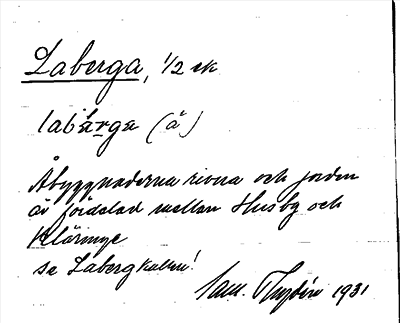 Laberga, 1/2 sk
labärga (å)
Åbyggnaderna rivna och jorden
är fördelad mellan Husby och
Kläringe
se Labergkullen!
1931